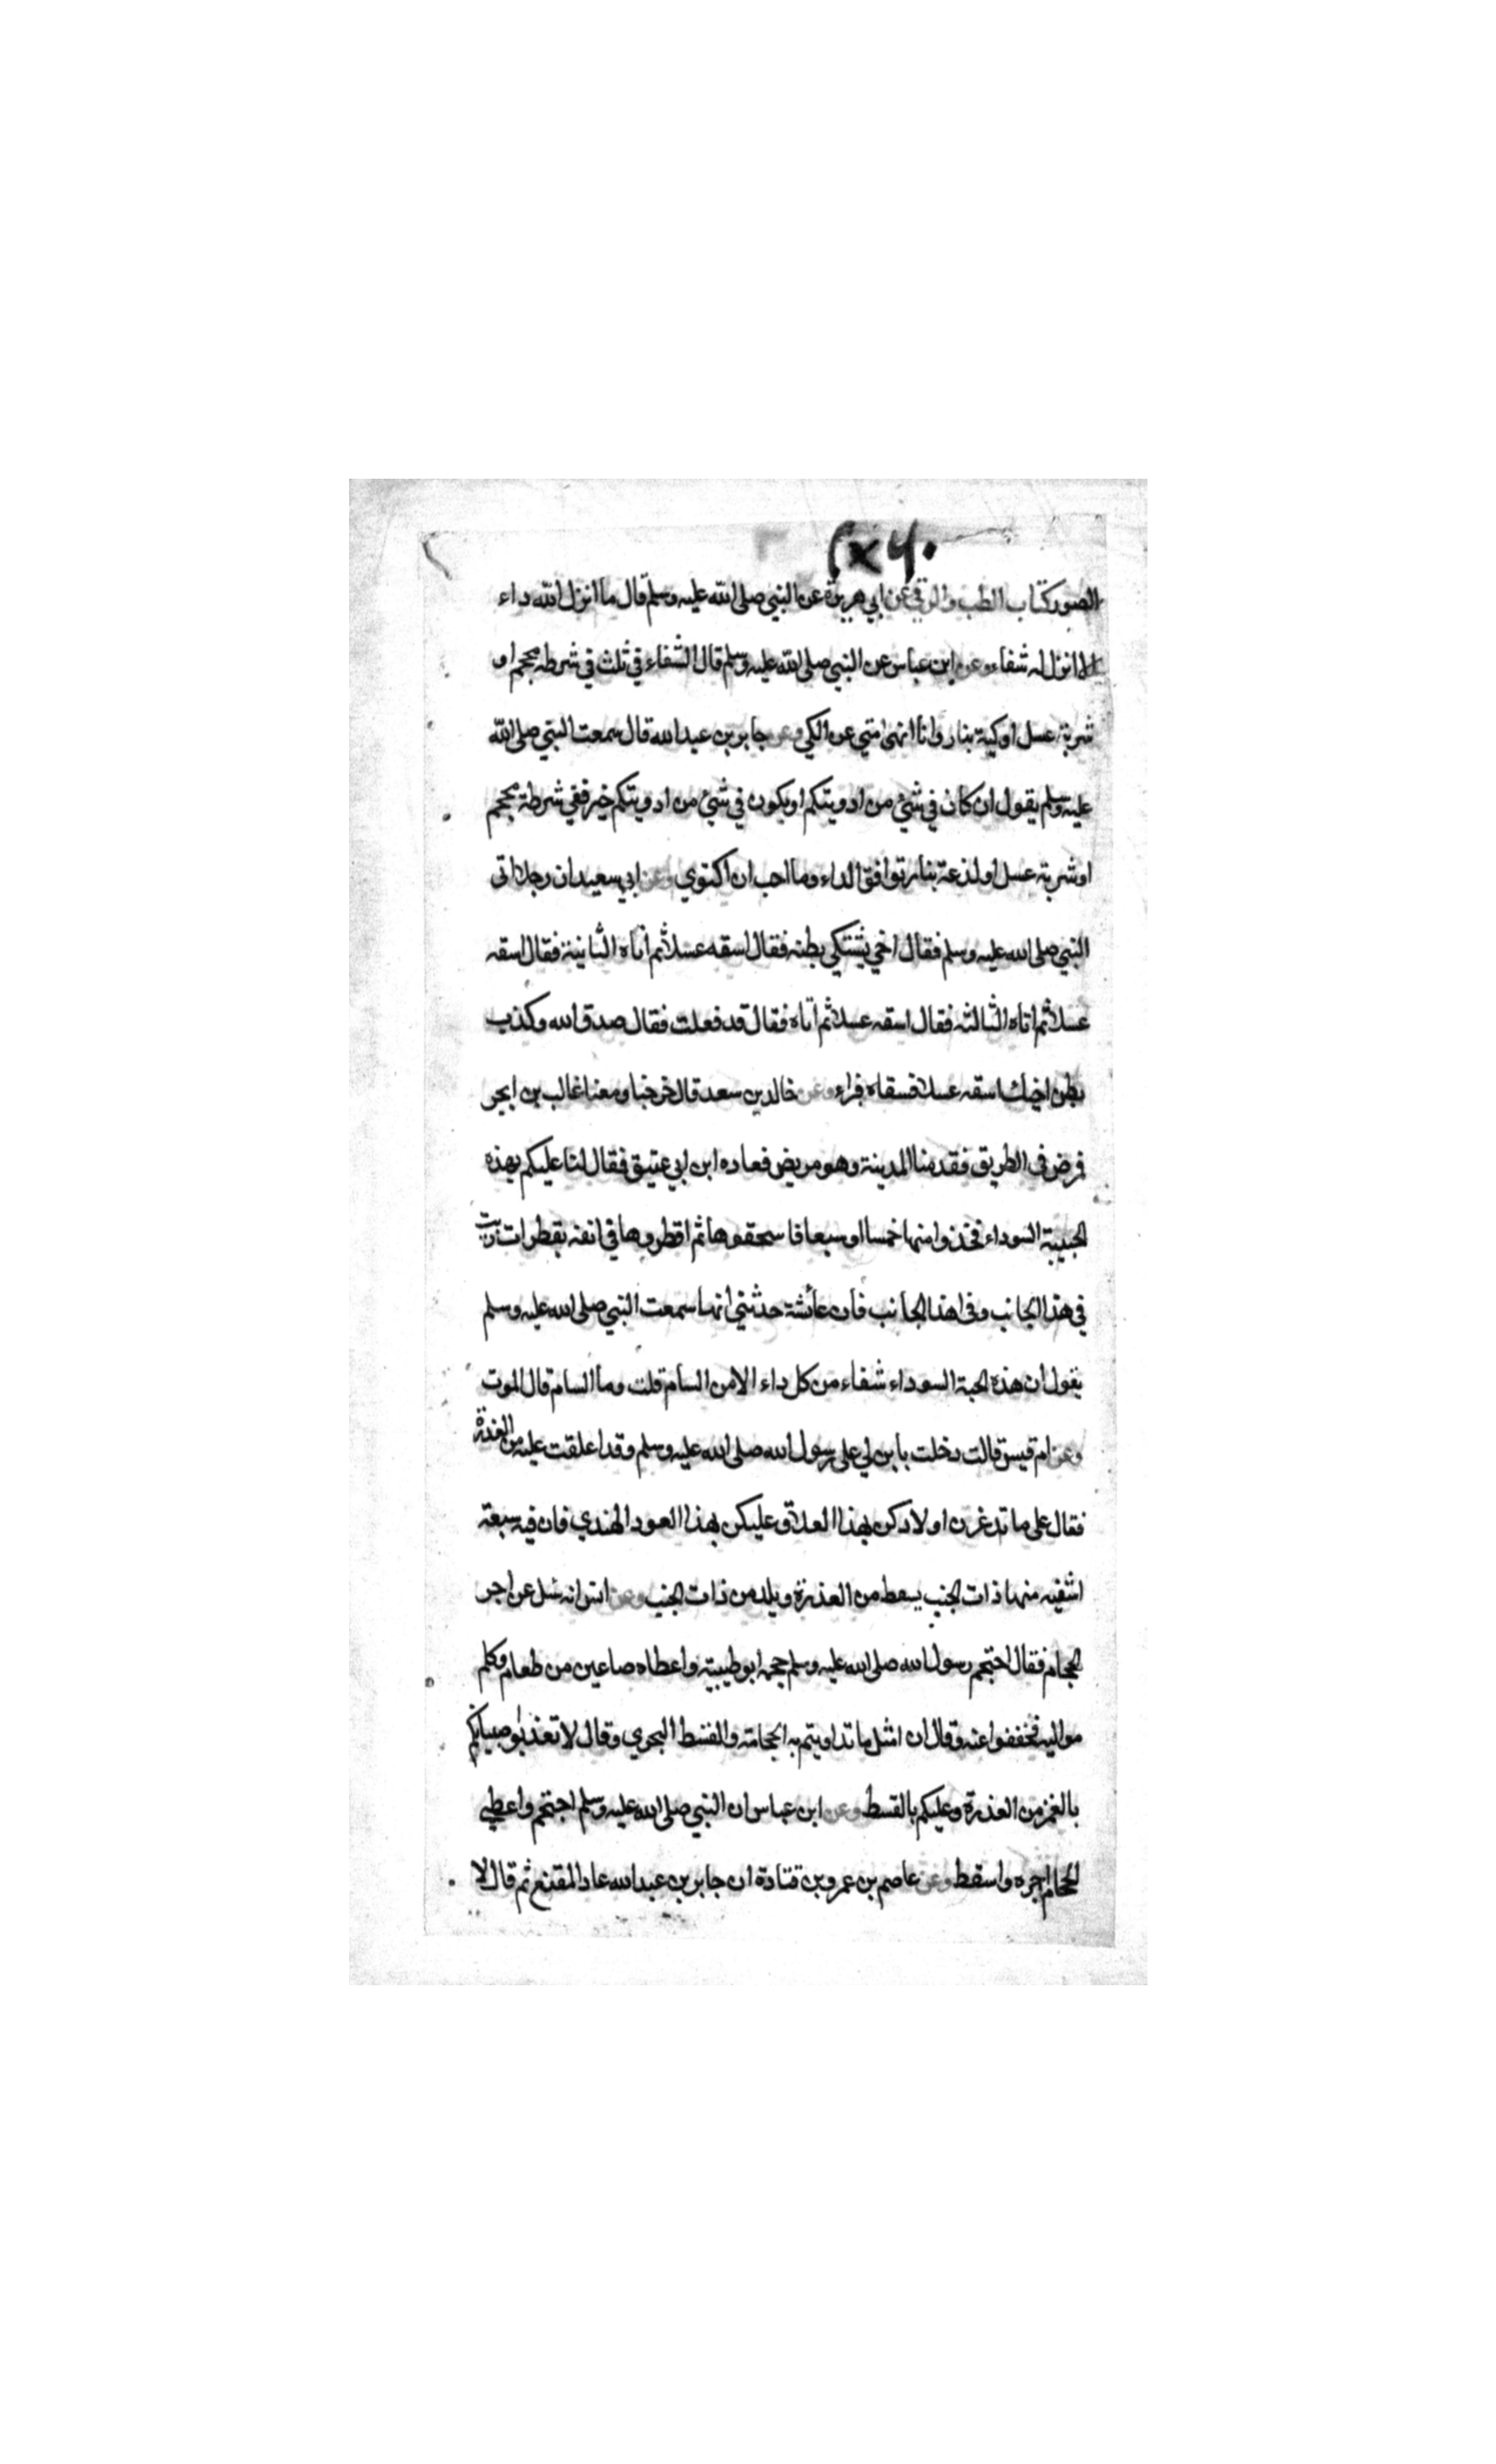 الصور كتاب الطب والرقى عن ابي هريرة عن النبي صلى الله عليه وسلم قال ما انزل الله داء
الا انزل له شفاء وعن ابن عباس عن النبي صلى الله عليه وسلم قال الشفاء في ثلث في شرطه محجم او
شربة عسل او كية بنار وانا انهى امتي عن الكي وعن جابر بن عبد الله قال سمعت النبي صلى الله
عليه وسلم يقول ان كان في شئ من ادويتكم او يكون في شئ من ادويتكم خير ففي شرطة محجم
او شربة عسل او لذعة بنار توافق الداء وما احب ان اكتوي وعن ابي سعيد ان رجلا اتى
النبي صلى الله عليه وسلم فقال اخي يشتكي بطنه فقال اسقه عسلا ثم اتاه الثانية فقال اسقه
عسلا ثم اتاه الثالثه فقال اسقه عسلا ثم اتاه فقال قد فعلت فقال صدق الله وكذب
بطن اخيك اسقه عسلا فسقاه فبراء وعن خالد بن سعد قال خرجنا ومعنا غالب بن ابجر
فمرض فى الطريق فقدمنا المدينة وهو مريض فعاده ابن ابي عتيق فقال لنا عليكم بهذه
الحبيبة السوداء فخذوا منها خمسا او سبعا فاسحقوها ثم اقطروها في انفه بقطرات زيت
في هذا الجانب وفى هذا الجانب فان عائشة حدثتني انها سمعت النبي صلى الله عليه وسلم
يقول ان هذه الحبة السوداء شفاء من كل داء الا من السام قلت وما السام قال الموت
وعن ام قيس قالت دخلت بابن لي على رسول الله صلى الله عليه وسلم وقد اعلقت عليه من العذرة
فقال على ما تدغرن اولادكن بهذا العلاق عليكن بهذا العود الهندي فان فيه سبعة
اشفيه منها ذات الجنب يسعط من العذرة ويلد من ذات الجنب وعن انس انه سئل عن اجر
الحجام فقال احتجم رسول الله صلى الله عليه وسلم حجمه ابو طيبة واعطاه صاعين من طعام وكلم
مواليه فخففوا عنه وقال ان امثل ما تداويتم به الحجامة والقسط البحري وقال لا تعذبوا صبيانكم
بالغمز من العذرة وعليكم بالقسط وعن ابن عباس ان النبي صلى الله عليه وسلم احتجم واعطي
الحجام اجره واسقط وعن عاصم بن عمرو بن قتادة ان جابر بن عبد الله عاد المقنع ثم قال لا